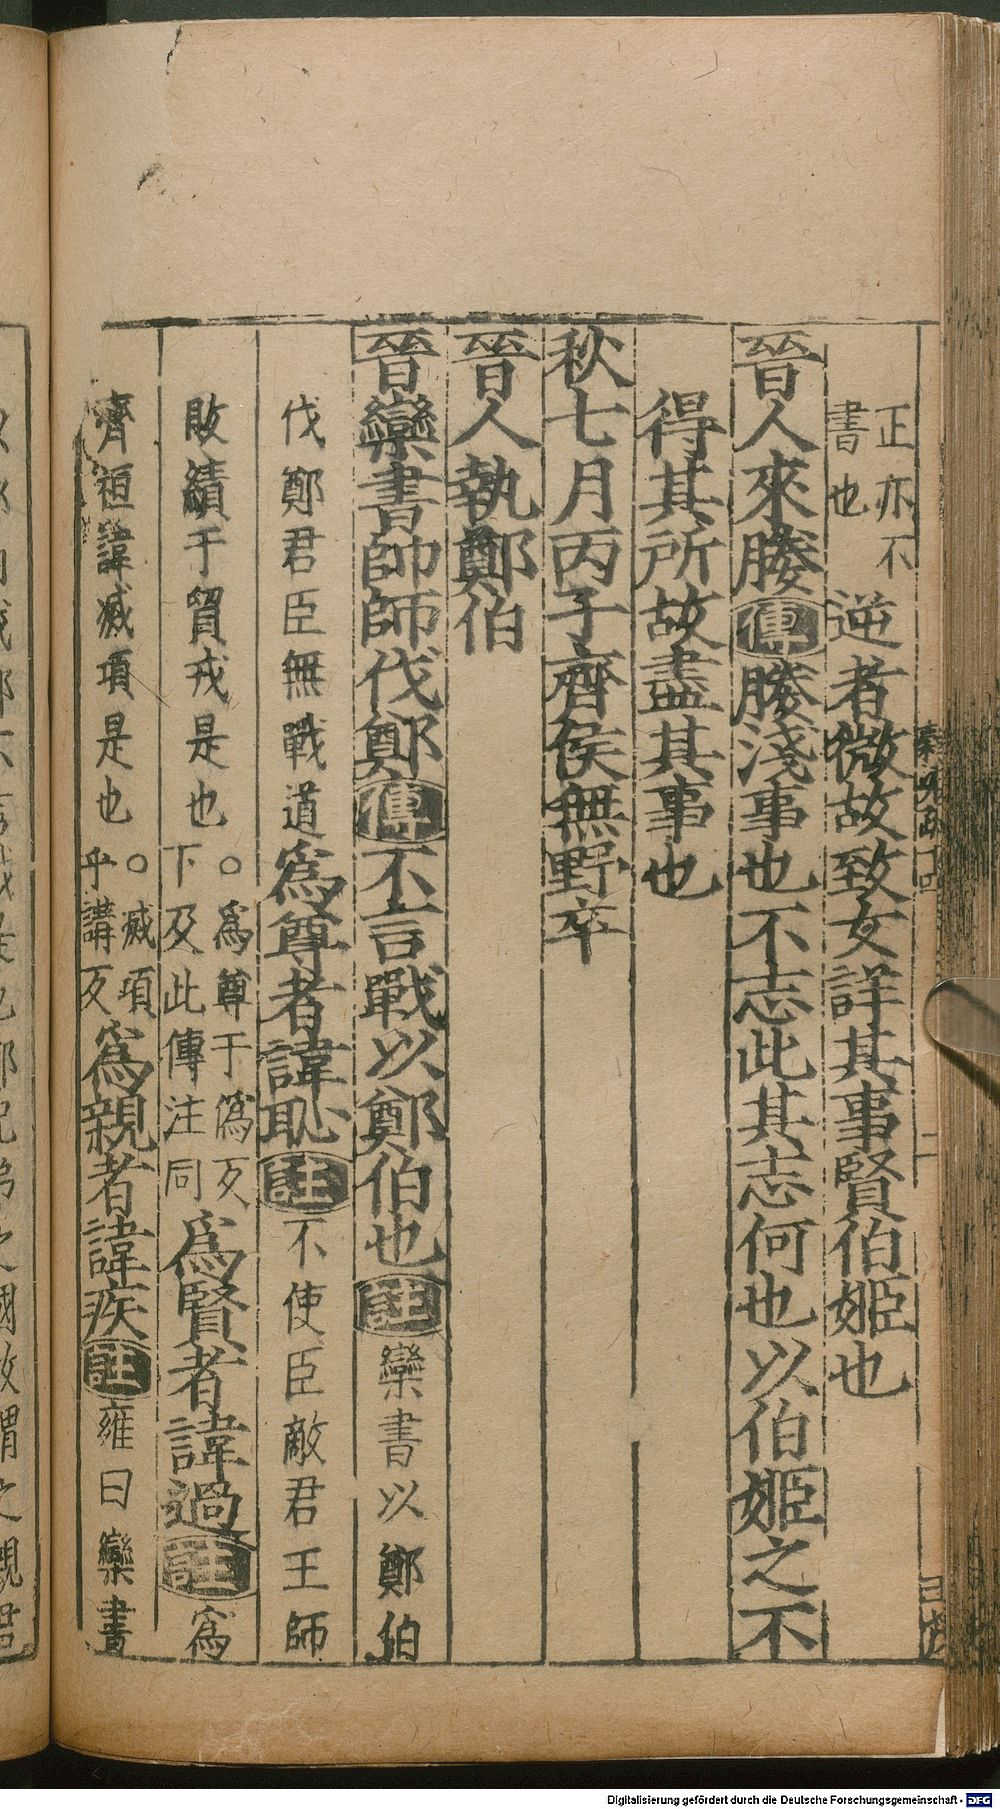 正亦不
書也
逆者微故致女詳其事賢伯姬也
晉人來媵傳媵淺事也不志此其志何也以伯姬之不
得其所故盡其事也
秋七月丙子齊侯無野卒
晉人執鄭伯
晉欒書帥師伐鄭傳不言戰以鄭伯也註欒書以鄭伯
伐鄭君臣無戰道為尊者諱恥註不使臣敵君王師
敗績于貿戎是也
○為尊于偽反
下及此傳注同
為賢者諱過註為
齊桓諱滅項是也
○滅項
乎講反
為親者諱疾註雍曰欒書
Digitalisierung gefördert durch die Deutsche Forschungsgemeinschaft - DFG